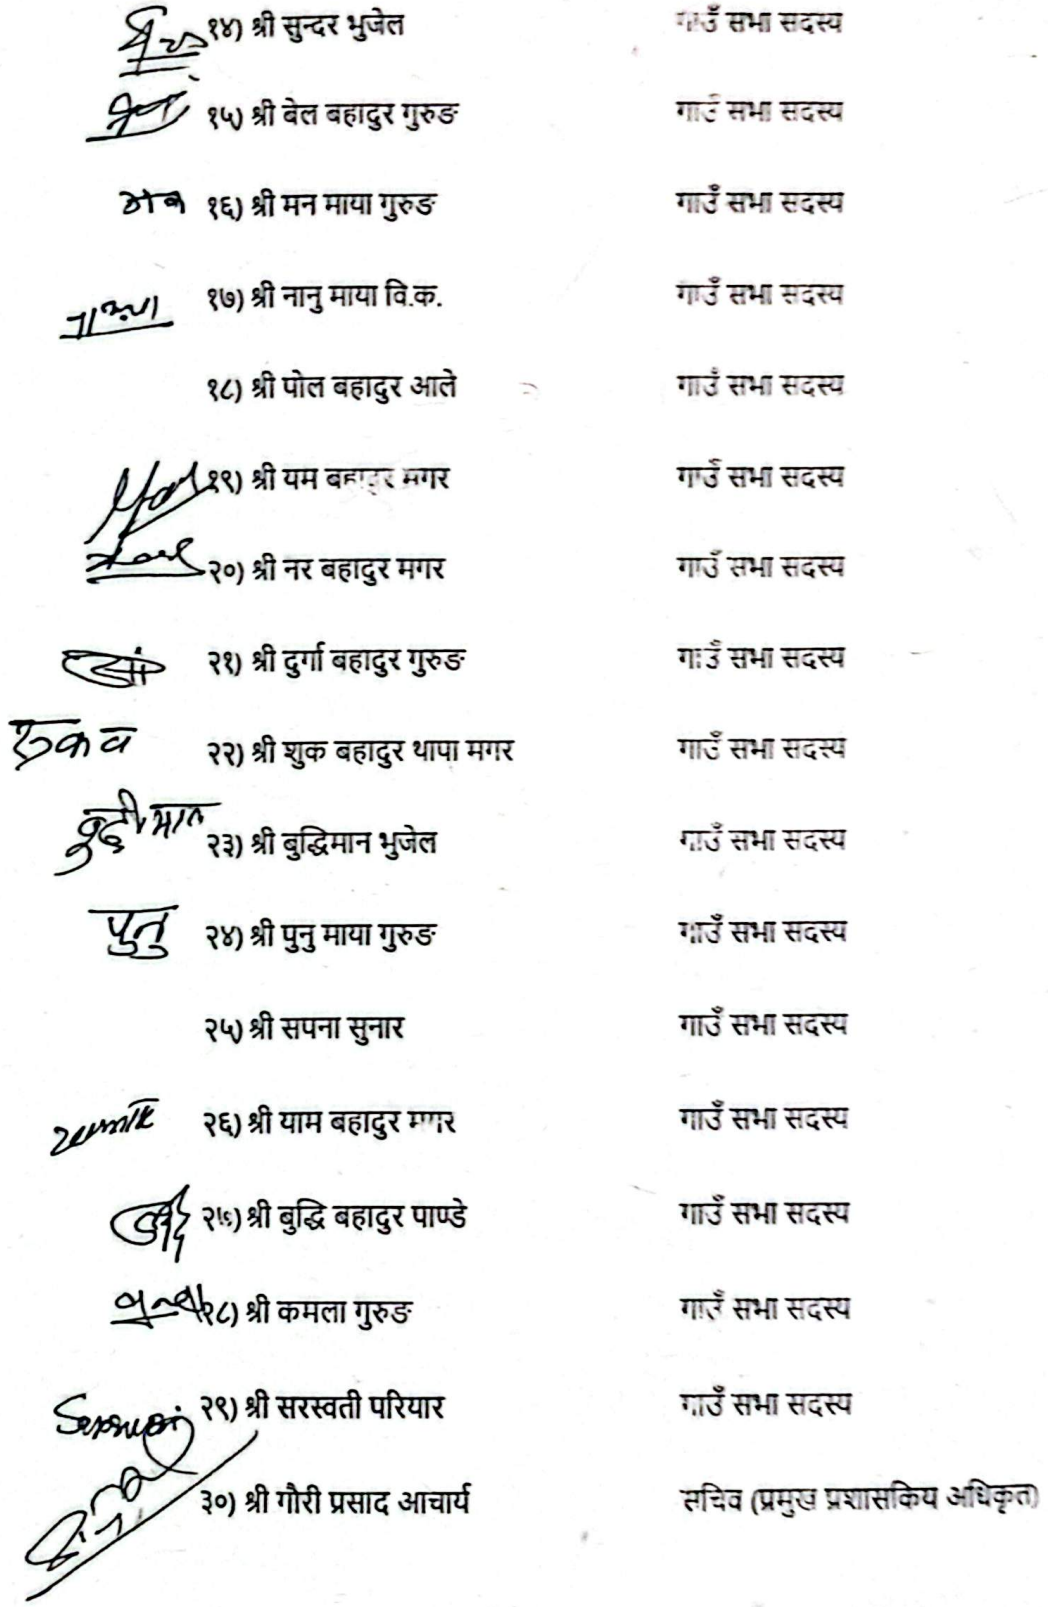 १४) श्री सुन्दर भुजेल गाउँ सभा सदस्य
१५) श्री बेल बहादुर गुरुङ गाउँ सभा सदस्य
१६) श्री मन माया गुरुङ गाउँ सभा सदस्य
१७) श्री नानु माया वि.क. गाउँ सभा सदस्य
१८) श्री पोल बहादुर आले गाउँ सभा सदस्य
१९) श्री यम बहादुर मगर गाउँ सभा सदस्य
२०) श्री नर बहादुर मगर गाउँ सभा सदस्य
२१) श्री दुर्गा बहादुर गुरुङ गाउँ सभा सदस्य
२२) श्री शुक बहादुर थापा मगर गाउँ सभा सदस्य
बुद्दीमान २३) श्री बुद्धिमान भुजेल गाउँ सभा सदस्य
पुनु २४) श्री पुनु माया गुरुङ गाउँ सभा सदस्य
२५) श्री सपना सुनार गाउँ सभा सदस्य
२६) श्री याम बहादुर मगर गाउँ सभा सदस्य
२७) श्री बुद्धि बहादुर पाण्डे गाउँ सभा सदस्य
२८) श्री कमला गुरुङ गाउँ सभा सदस्य
२९) श्री सरस्वती परियार गाउँ सभा सदस्य
३०) श्री गौरी प्रसाद आचार्य सचिव (प्रमुख प्रशासकिय अधिकृत)